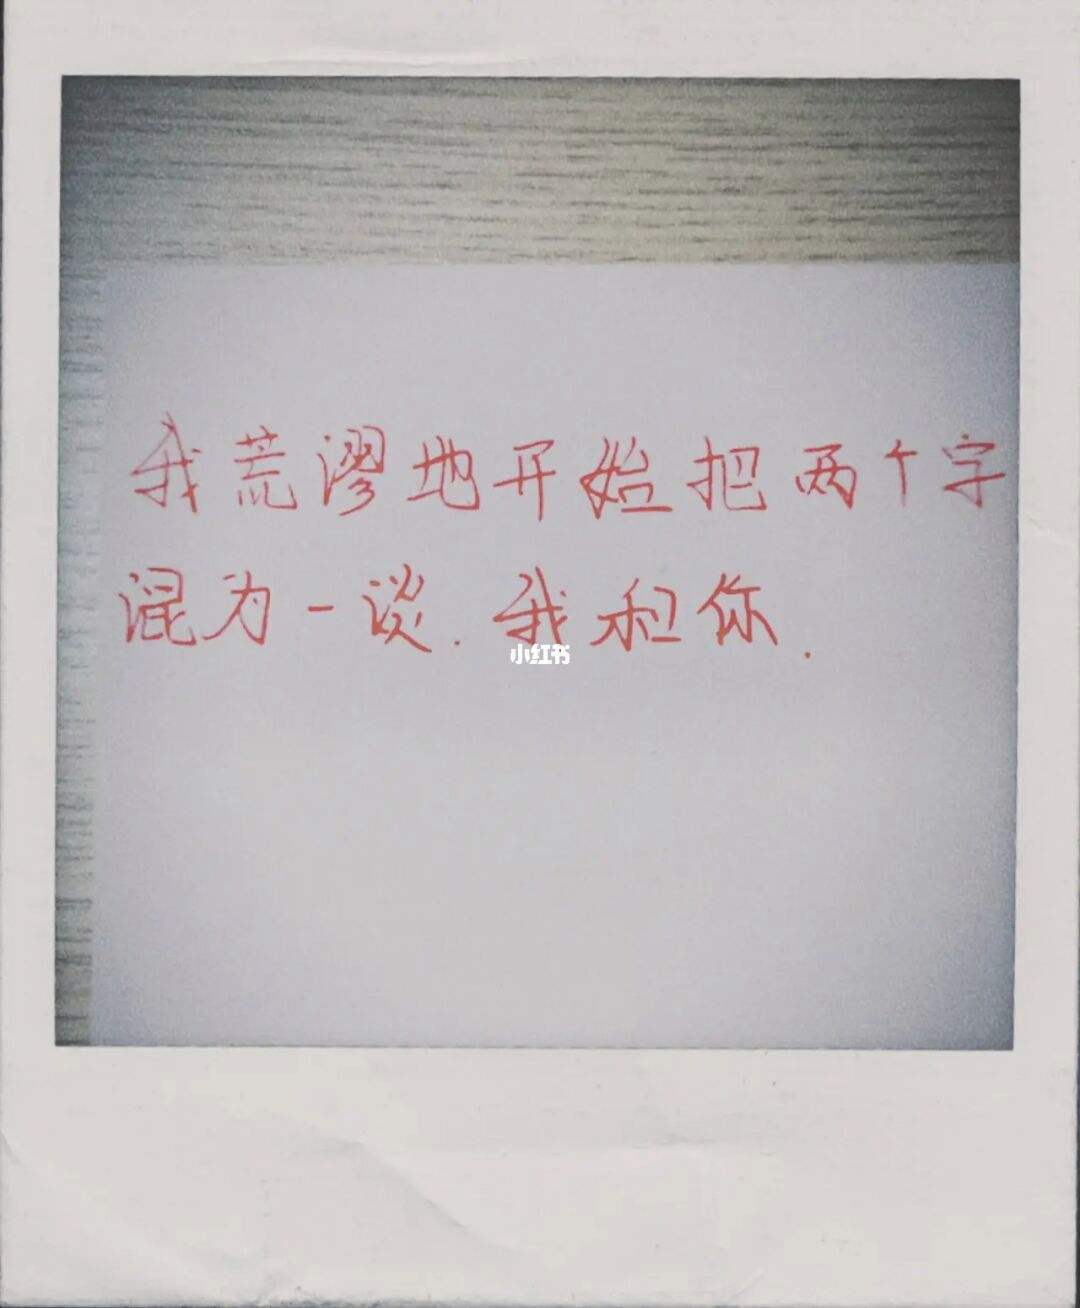 我荒谬地开始把两个字
混为一谈.我和你.
小红书